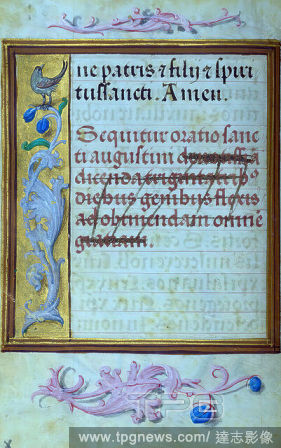 ne patris ⁊ filij ⁊ spiri
tussancti. Amen.
Sequitur oratio sanc
ti augustini
dicenda
diebus genibus flexis
ad obtinendam omnē
gratiam.
www.tpgnews.com/ 達志影像